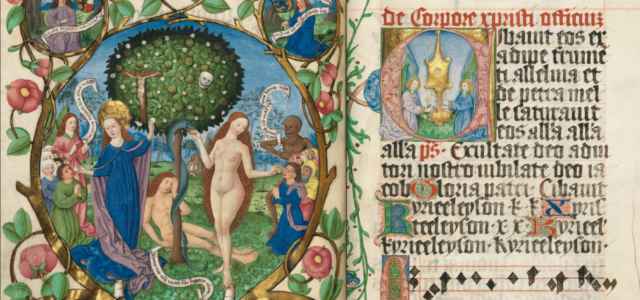 de Corpore xpristi officiuz
Cibauit eos ex
adipe frume
ti alleluia et
de petra mel
le saturauit
eos alla alla
alla ps. Exultate deo adiu
tori nostro iubilate deo ia
cob Gloria patri Cibauit
Kyrieeleyson k k Xpris
teeleyson x x Kyrieel
kyrieeleyson kyrieeleyson.